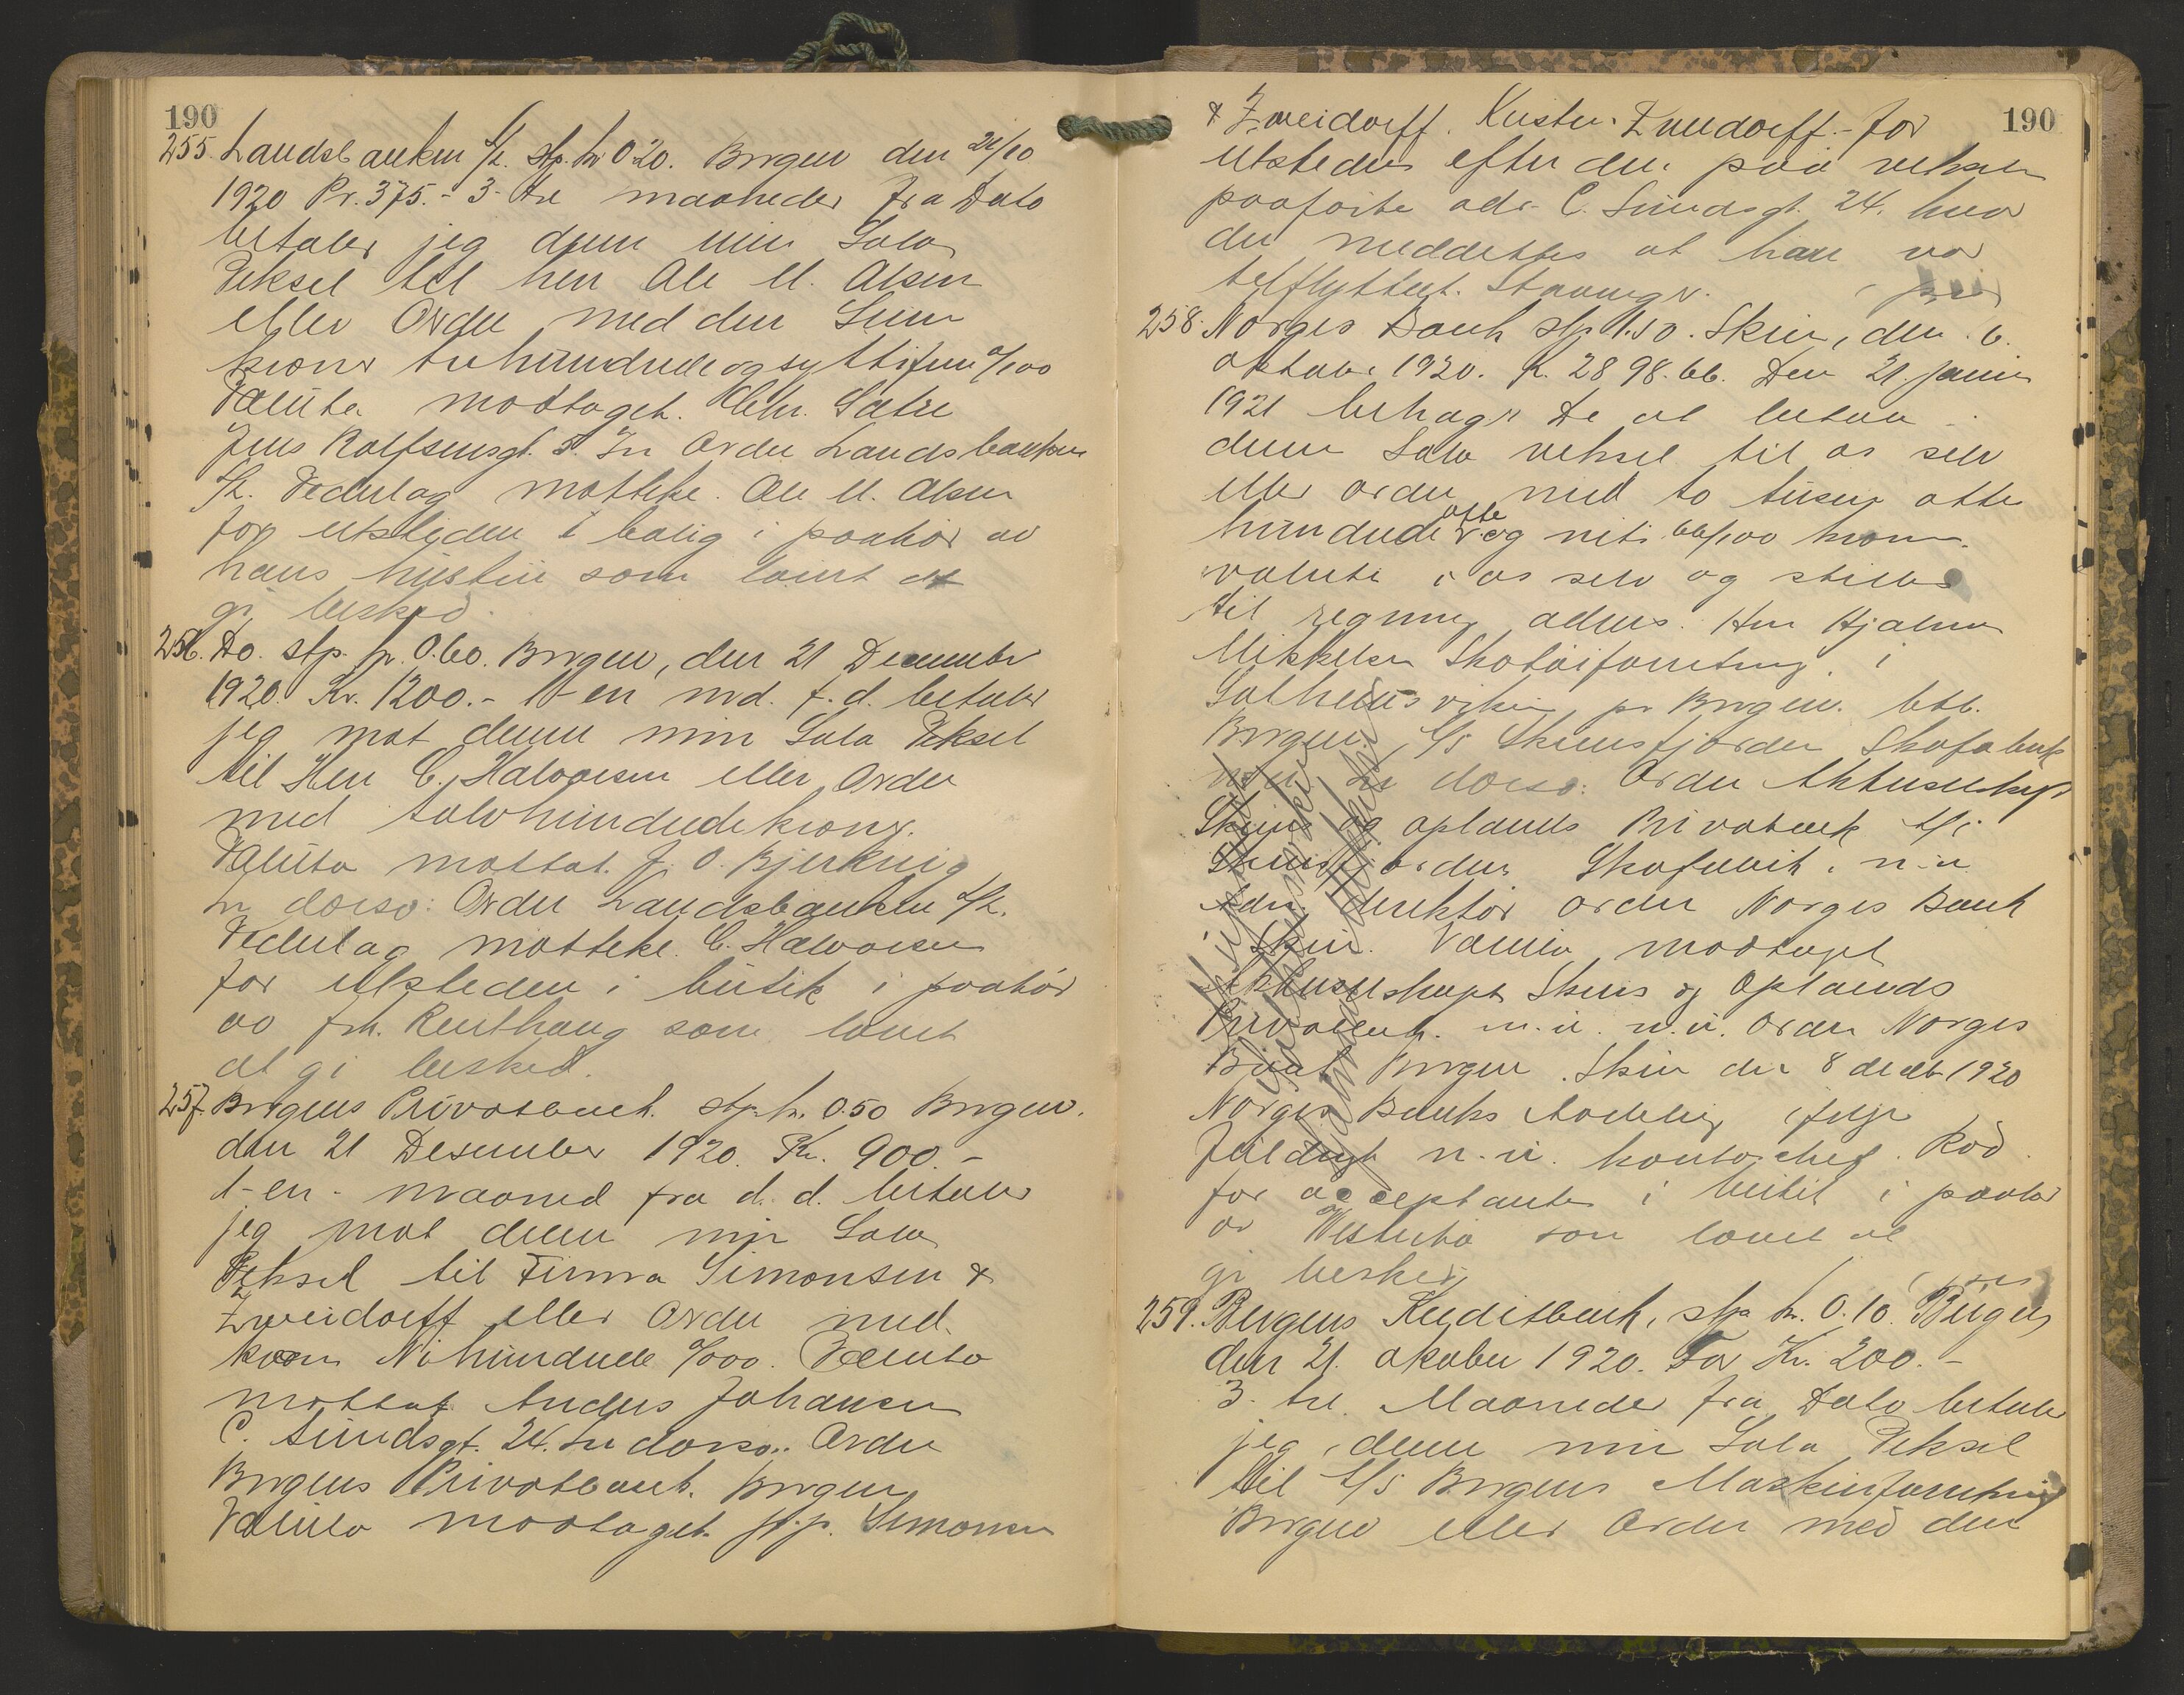 190
255. Landsbanken A/L. stp. kr 0.20. Bergen den 21/10
1920 Kr. 375.- 3- tre maaneder fra Dato
betaler jeg denne min Sola
Veksel til herr Ole M. Olsen
eller Ordre med den Sum
kroner trehundredeogsyttifem 0/100
Valuta modtaget. Chr. Sætre
Jens Rolfsensgt. 5. In Ordre Landsbanken
A/L. Vederlag mottike. Ole M. Olsen
for utstederen i bolig i paahör av
hans hustru som lovet at
gi besked.
256. Do. stp. kr. 0.60. Bergen, den 21 December
1920. Kr. 1200.- 1- en md. f. d. betaler
jeg mot denne min Sola Veksel
til Herr C. Halvorsen eller Ordre
med tolvhundrede kroner.
Valuta mottat. J. O. Bjerknig
In dorso: Ordre Landsbanken A/L.
Vederlag mottike. C. Halvorsen
for utstederen i butik i paahör
av frk. Rensthaug som lovet
at gi besked.
257. Bergens Privatbank. stp. kr. 0.50 Bergen.
den 21 Desember 1920. Kr. 900.-
1- en - maaned fra d. d. betaler
jeg mot denne min Sola
Veksel til Firma Simonsen &
Zweidorff eller Ordre med
kroner Nihundrede 0/000. Valuta
mottat Anders Johansen
C. Sundsgt. 24. In dorso: Ordre
Bergens Privatbank. Bergen
Valuta modtaget. pr. p. Simonsen
190
& Zweidorff. Zweidorff.- for
utstederen efter den paa vekselen
paaförte adr. C. Sundsgt. 24. hvor
der meddeltes at han var
Stavanger.
258. Norges Bank stp. 1.50. Skien, den 6.
oktober 1920. K. 2898.66. Den 21. januar
1921 behager De at betale
denne Sola veksel til os selv
eller ordre med to tusen otte
hundrede otte og niti 66/100 kroner.
valuta i os selv og stilles
til regning Herr Hjalmar
Mikkelsen Skotöiforretning, i
Solheimsviken pr Bergen. betb.
Bergen, A/S Skiensfjorden Skofabrik
In dorso: Ordre Aktieselskapet
Skiens og oplands Privatbank A/S
Skiensfjordens Skofabrik. n.n
Adm. direktör ordre Norges Bank
i Skien. Valuta modtaget
Aktieselskapet Skiens og Oplands
Privatbank. n.n. n.n. ordre Norges
Bank Bergen. Skien den 8 decb 1920
Norges Banks Avdeling ifölge
n.n. kontorchef. Röd.
for acceptanten i butik i paahör
av som lovet at
gi besked.
259. Bergens Kreditbank, stp. kr. 0.10. Bergen,
den 21. oktober 1920. For Kr. 200.-
3. tre. Maaneder fra Dato betaler
jeg denne min Sola Veksel
til A/S Bergens Maskinforretning
Bergen eller Ordre med den